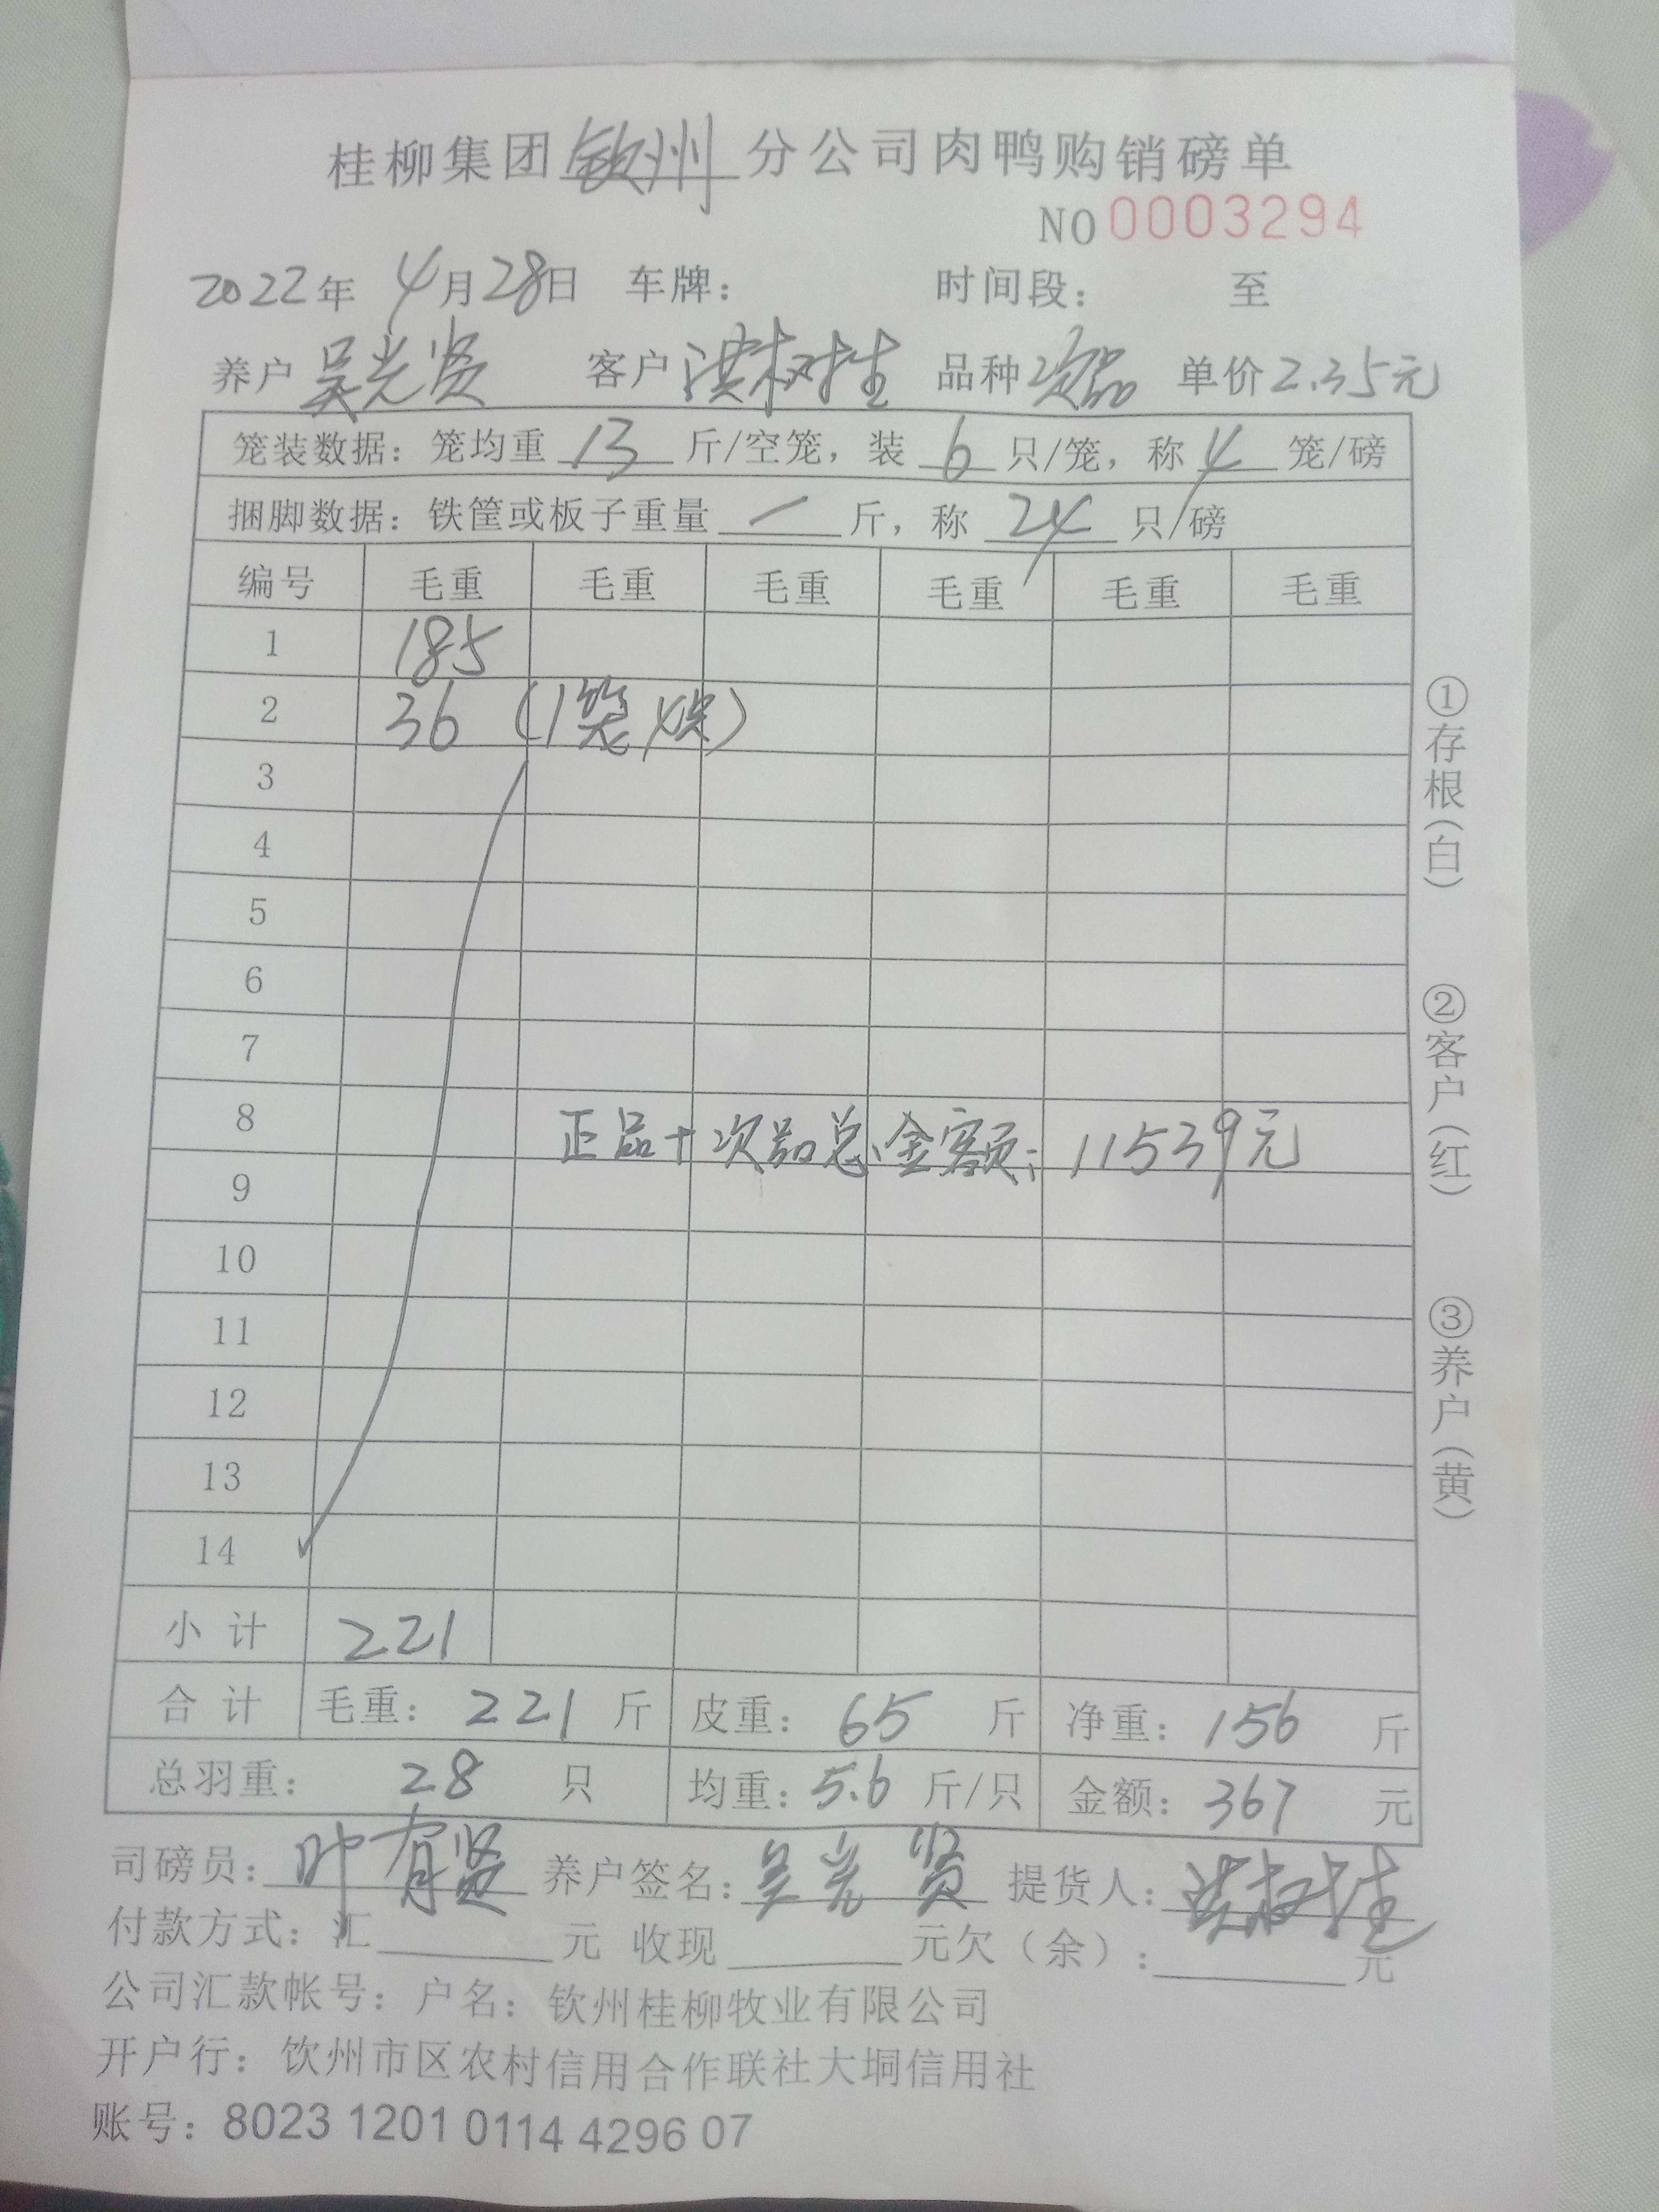 桂柳集团钦州分公司肉鸭购销磅单
NO 0003294
2022年 4月28日 车牌： 时间段： 至
养户 吴光贤 客户 洪树生 品种 次品 单价 2.35元
笼装数据：笼均重 13 斤/空笼，装 6 只/笼，称 4 笼/磅
捆脚数据：铁筐或板子重量 — 斤，称 24 只/磅
编号 毛重 毛重 毛重 毛重 毛重 毛重
1 185
2 36 (1笼 4只)
3
4
5
6
7
8 正品+次品总金额：11539元
9
10
11
12
13
14
小计 221
合计 毛重：221 斤 皮重：65 斤 净重：156 斤
总羽重：28 只 均重：5.6 斤/只 金额：367 元
司磅员：叶有贤 养户签名：吴光贤 提货人：洪树生
付款方式：汇 元 收现 元欠（余）： 元
公司汇款帐号：户名：钦州桂柳牧业有限公司
开户行：钦州市区农村信用合作联社大垌信用社
账号：8023 1201 0114 4296 07
①存根(白)
②客户(红)
③养户(黄)